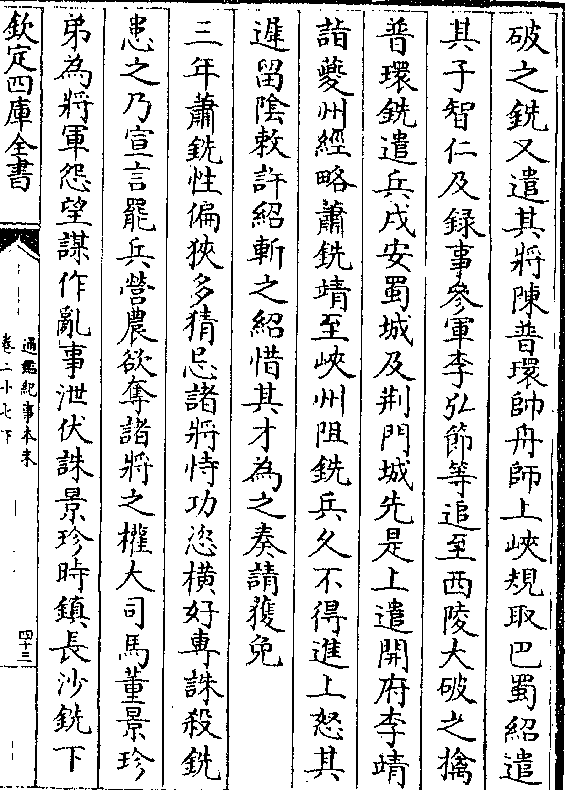 破之銑又遣其將陳普環帥舟師上峽規取巴蜀紹遣
其子智仁及録事參軍李弘節等追至西陵大破之擒
普環銑遣兵戍安蜀城及荆門城先是上遣開府李靖
詣夔州經略蕭銑靖至峽州阻銑兵久不得進上怒其
遲留陰敕許紹斬之紹惜其才為之奏請獲免
三年蕭銑性偏狹多猜忌諸將恃功恣横好專誅殺銑
患之乃宣言罷兵營農欲奪諸將之權大司馬董景珍
弟為將軍怨望謀作亂事泄伏誅景珍時鎮長沙銑下
欽定四庫全書
通鑑紀事本末
卷二十七下
四十三